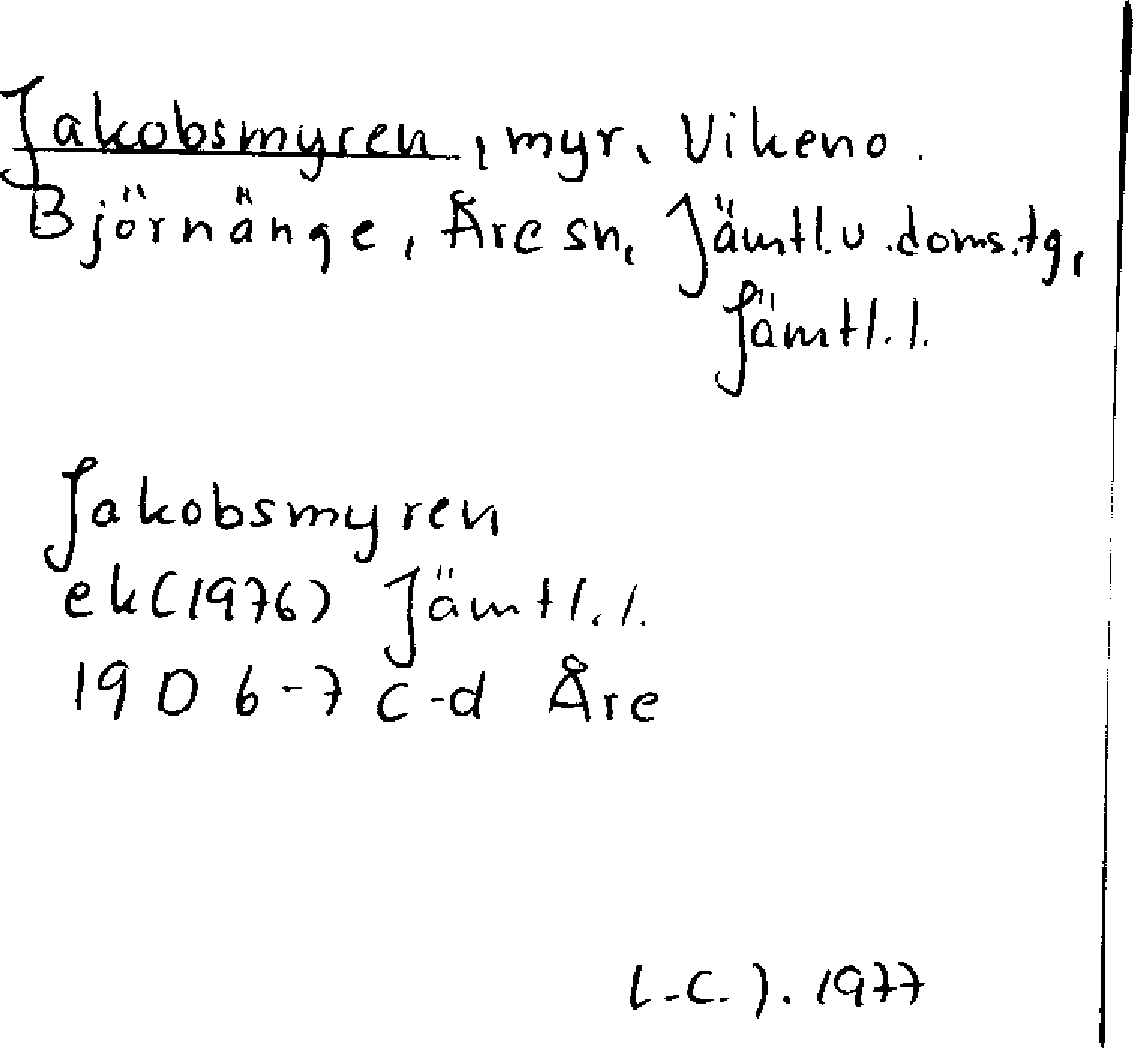 Jakobsmyren, myr, V ikeno.
Björnänge, Åre sn, Jämtl.v.doms.tg,
Jämtl.l.
Jakobsmyren
ek(1976) Jämtl.l.
19 D 6-7 c-d Åre
L-C. J. 1977